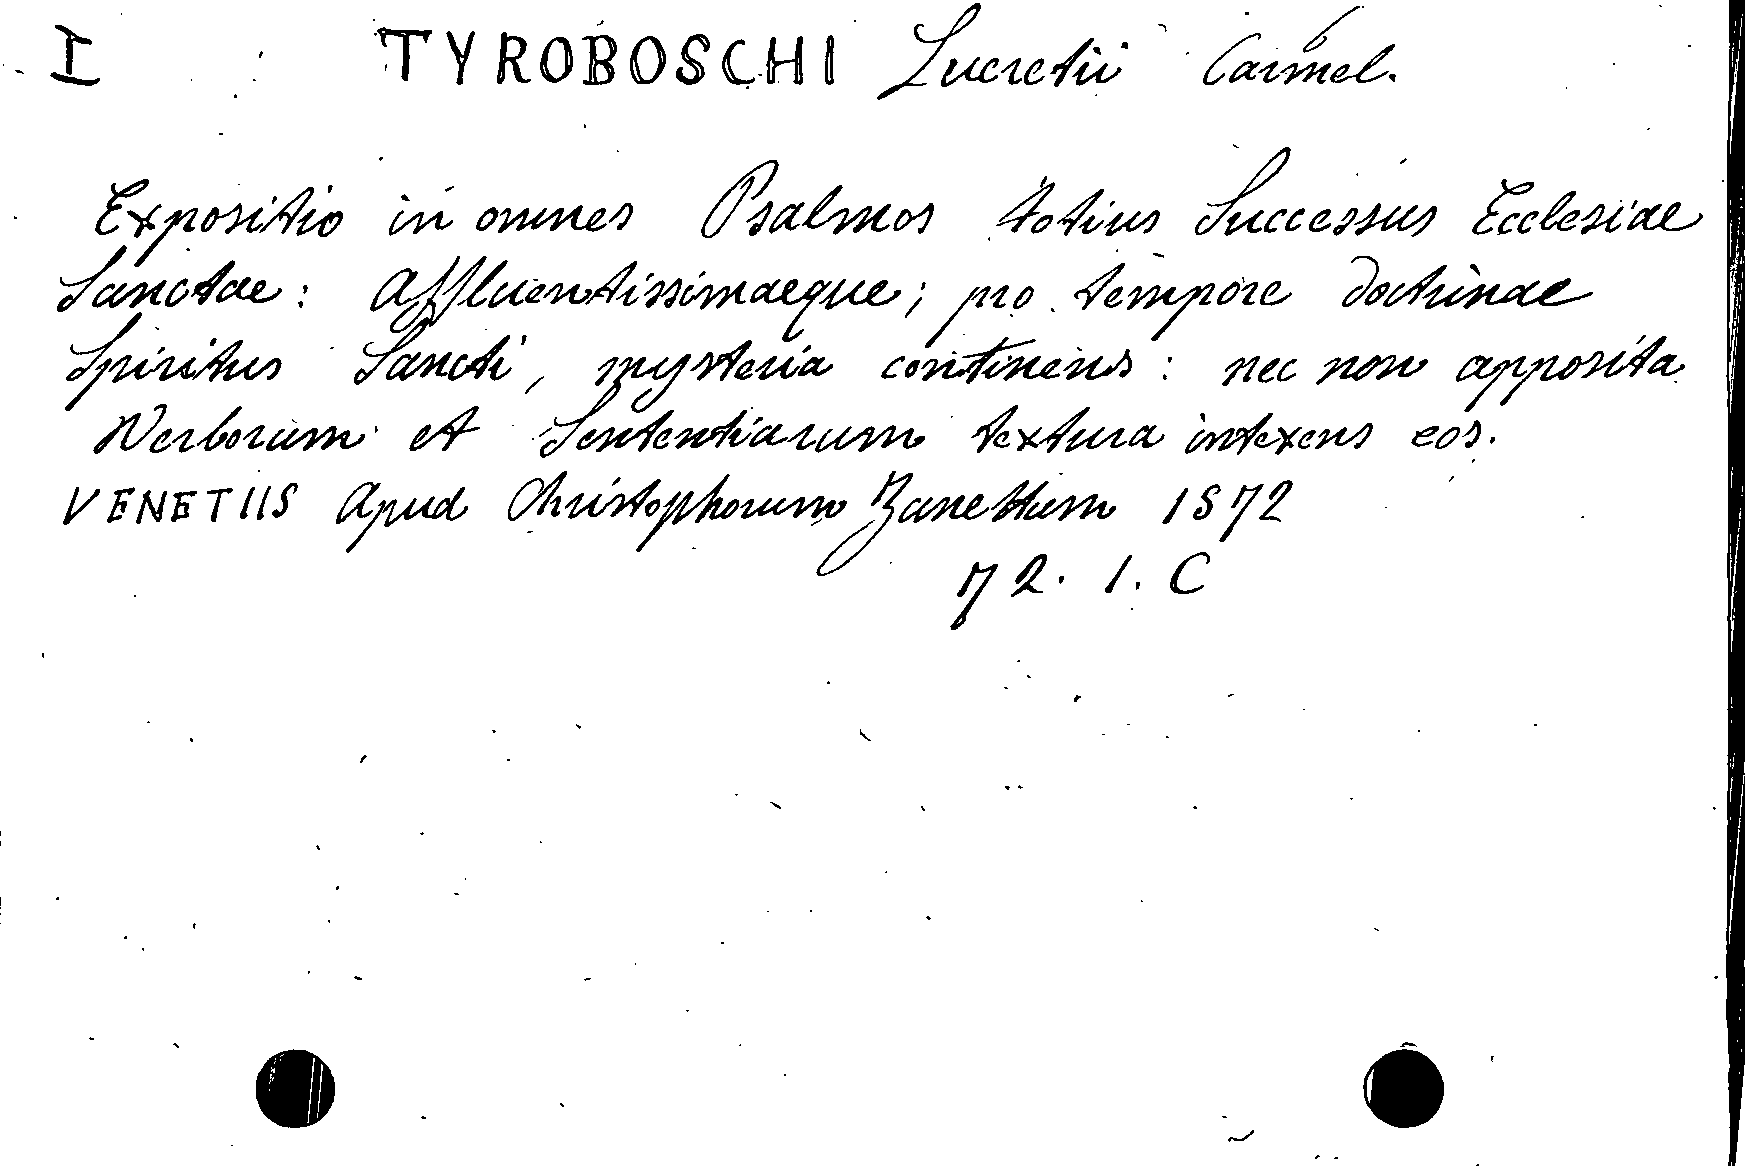 I TYROBOSCHI Lucretii Carmel.
Expositio in omnes Psalmos totius Successus Ecclesiae
Sanctae: Affluentissimaeque; pro tempore doctrinae
Spiritus Sancti, mysteria continens: nec non apposita
Verborum et Sententiarum textura intexens eos.
VENETIIS Apud Christophorum Zanettum 1572
72. 1. C